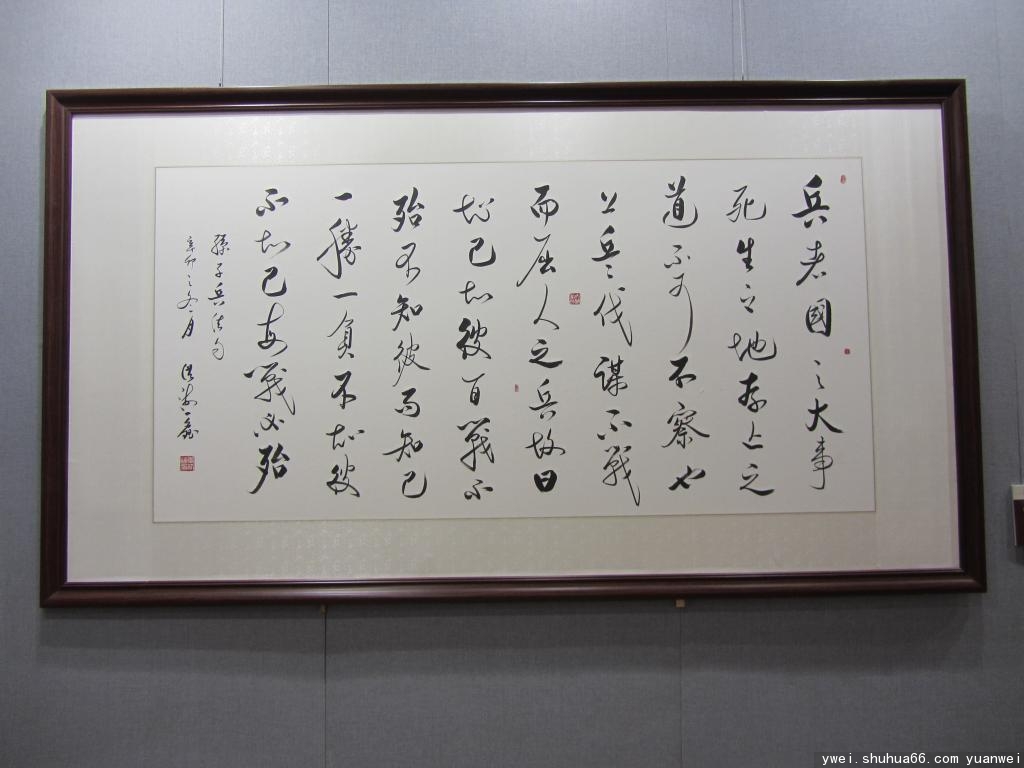 兵者國之大事
死生之地存亡之
道不可不察也
上兵之伐謀不戰
而屈人之兵故曰
知己知彼百戰不
殆不知彼而知己
一勝一負不知彼
不知己每戰必殆
孫子兵法句
辛卯之冬月
ywei.shuhua66.com yuanwei